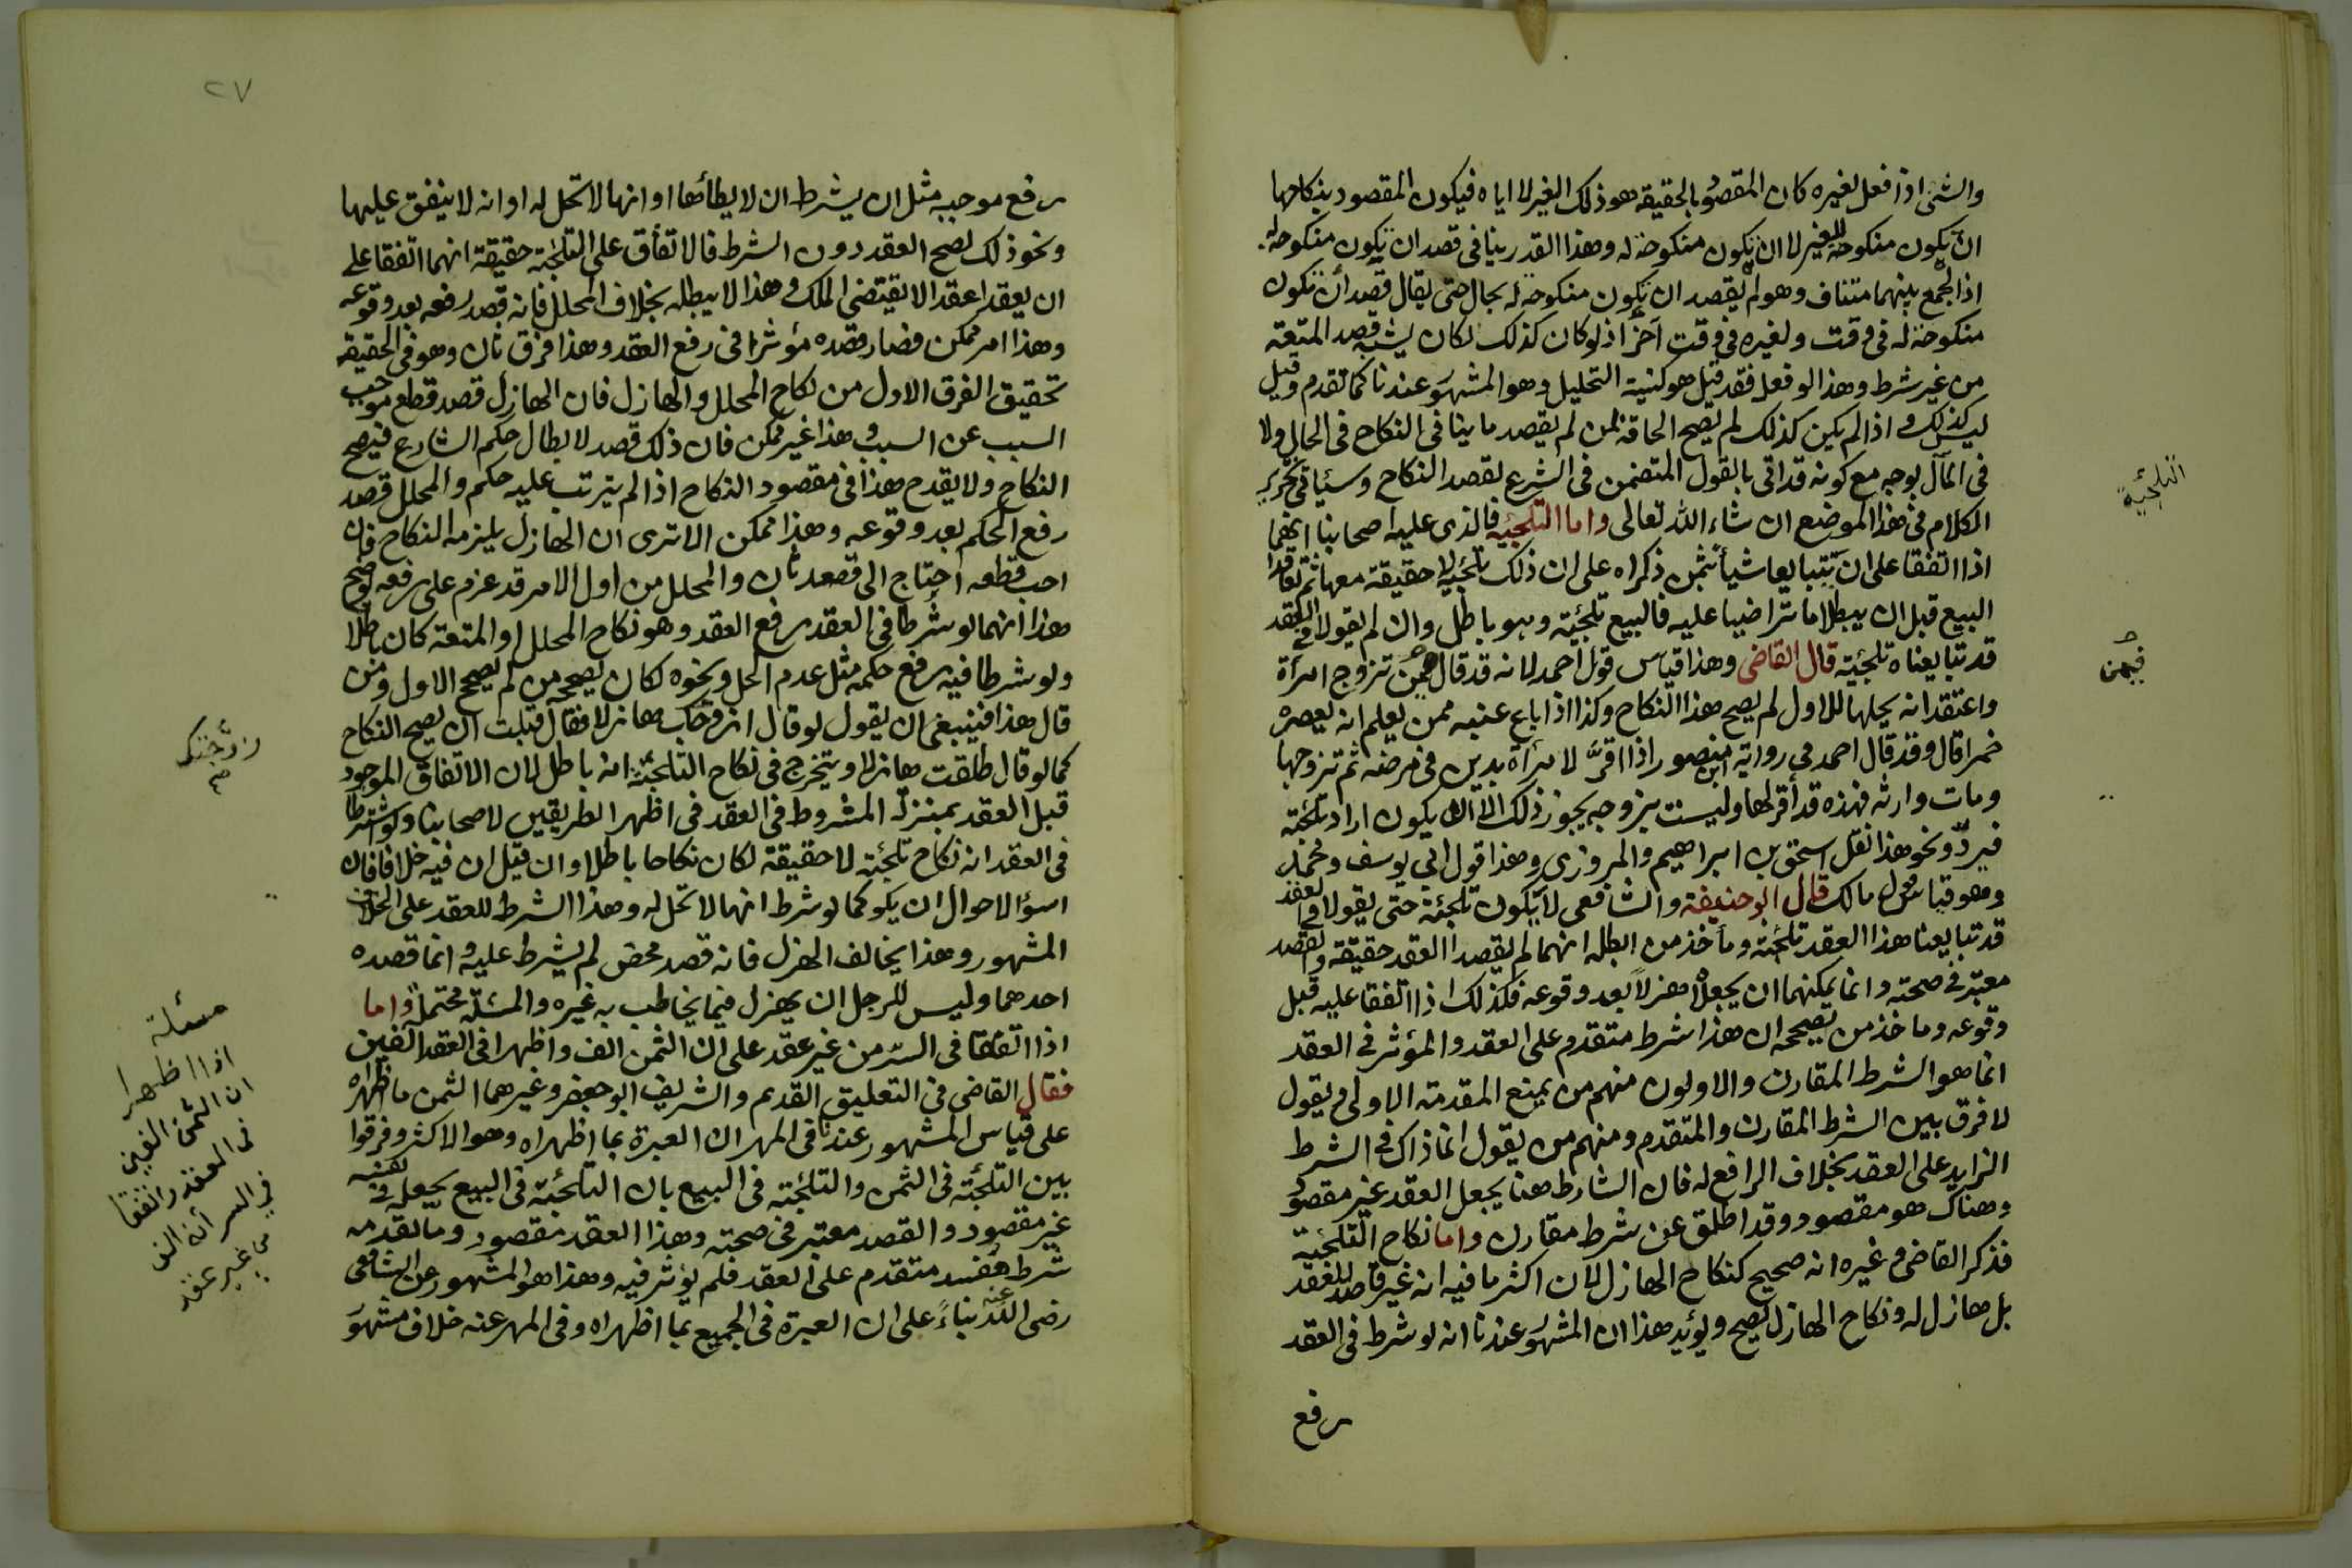 والشئ اذا فعل لغيره كان المقصود بالحقيقة هو ذلك الغير لا اياه فيكون المقصود بنكاحها
ان تكون منكوحة للغير لا ان تكون منكوحة له وهذا القدر ينافى قصد ان تكون منكوحة له
اذ الجمع بينهما متناف وهو لم يقصد ان تكون منكوحة له بحال حتى يقال قصد أن تكون
منكوحة له فى وقت ولغيره فى وقت آخر اذ لو كان كذلك لكان يشبه قصد المتعة
من غير شرط وهذا لو فعل فقد قيل هو كنية التحليل وهو المشهور عندنا كما تقدم وقيل
ليس كذلك و اذا لم يكن كذلك لم يصح الحاقه بمن لم يقصد ما ينافى النكاح فى الحال ولا
فى المآل بوجه مع كونه قد اتى بالقول المتضمن فى الشرع لقصد النكاح وسيأتى تحرير
الكلام فى هذا الموضع ان شاء الله تعالى واما التلجئة فالذى عليه اصحابنا انهما
اذا اتفقا على ان يتبايعا شيأ بثمن ذكراه على ان ذلك تلجئة لا حقيقة معها ثم تعاقدا
البيع قبل ان يبطلا ما تراضيا عليه فالبيع تلجئة وهو باطل وان لم يقولا فى العقد
قد تبايعناه تلجئة قال القاضى وهذا قياس قول احمد لانه قد قال فيمن تزوج امرأة
واعتقد انه يحلها للاول لم يصح هذا النكاح وكذا اذا باع عنبه ممن يعلم انه يعصره
خمرا قال وقد قال احمد فى رواية ابن منصور اذا اقرّ لامرأة بدين فى مرضه ثم تزوجها
ومات وارثه فهذه قد أقر لها وليست بزوجه يجوز ذلك الا ان يكون اراد تلجئة
فيردّ ونحو هذا نقل اسحق بن ابراهيم والمروزى وهذا قول ابى يوسف ومحمد
وهو قياس قول مالك قال ابو حنيفة والشافعى لا يكون تلجئة حتى يقولا فى العقد
قد تبايعنا هذا العقد تلجئة ومأخذ من ابطله انهما لم يقصدا العقد حقيقة والقصد
معتبر فى صحته وانما يمكنهما ان يجعلاه هزلاً بعد وقوعه فكذلك اذا اتفقا عليه قبل
وقوعه وما خذ من يصححه ان هذا شرط متقدم على العقد والمؤثر فى العقد
انما هو الشرط المقارن والاولون منهم من يمنع المقدمة الاولى ويقول
لا فرق بين الشرط المقارن والمتقدم ومنهم من يقول انما ذاك فى الشرط
الزايد على العقد بخلاف الرافع له فان الشارط هنا يجعل العقد غير مقصود
وهناك هو مقصود وقد اطلق عن شرط مقارن واما نكاح التلجئة
فذكر القاضى وغيره انه صحيح كنكاح الهازل لان اكثر ما فيه انه غير قاصد للعقد
بل هازل له ونكاح الهازل يصح ويؤيد هذا ان المشهور عندنا انه لو شرط فى العقد
رفع
التلجئة
فيمن
٢٧
رفع موجبه مثل ان يشرط ان لا يطأها او انها لا تحل له او انه لا ينفق عليها
ونحو ذلك لصح العقد دون الشرط فالاتفاق على التلجئة حقيقة انهما اتفقا على
ان يعقدا عقدا لا يقتضى الملك وهذا لا يبطله بخلاف المحلل فانه قصد رفعه بعد وقوعه
وهذا امر ممكن فصار قصده مؤثرا فى رفع العقد وهذا فرق ثان وهو فى الحقيقة
تحقيق الفرق الاول من نكاح المحلل والهازل فان الهازل قصد قطع موجب
السبب عن السبب وهذا غير ممكن فان ذلك قصد لابطال حكم الشارع فيصح
النكاح ولا يقدح هذا فى مقصود النكاح اذا لم يترتب عليه حكم والمحلل قصد
رفع الحكم بعد وقوعه وهذا ممكن الا ترى ان الهازل يلزمه النكاح فان
احب قطعه احتاج الى قصد ثان والمحلل من اول الامر قد عزم على رفعه يوضح
هذا انهما لو شرطا فى العقد رفع العقد وهو نكاح المحلل او المتعة كان باطلا
ولو شرطا فيه رفع حكمه مثل عدم الحل ونحوه لكان يصححه من لم يصحح الاول ومن
قال هذا فينبغى ان يقول لو قال زوجتك هازلا فقال قبلت ان يصح النكاح
كما لو قال طلقت هازلا ويتخرج فى نكاح التلجئة انه باطل لان الاتفاق الموجود
قبل العقد بمنزلة المشروط فى العقد فى اظهر الطريقين لاصحابنا ولو اشترطا
فى العقد انه نكاح تلجئة لا حقيقة لكان نكاحا باطلا وان قيل ان فيه خلافا فان
اسوأ الاحوال ان يكون كما لو شرط انها لا تحل له وهذا الشرط للعقد على الخلاف
المشهور وهذا يخالف الهزل فانه قصد محض لم يشرط عليه وانما قصده
احدهما وليس للرجل ان يهزل فيما يخاطب به غيره والمسئلة محتملة واما
اذا اتفقا فى السرّ من غير عقد على ان الثمن الف واظهرا فى العقد الفين
فقال القاضى فى التعليق القديم والشريف ابو جعفر وغيرهما الثمن ما اظهراه
على قياس المشهور عندنا فى المهر ان العبرة بما اظهراه وهو الاكثر وفرقوا
بين التلجئة فى الثمن والتلجئة فى البيع بان التلجئة فى البيع يجعله فى نفسه
غير مقصود والقصد معتبر فى صحته وهذا العقد مقصود وما تقدمه
شرط مفسد متقدم على العقد فلم يؤثر فيه وهذا هو المشهور عن الشافعى
رضى الله عنه بناءً على ان العبرة فى الجميع بما اظهراه وفى المهر عنه خلاف مشهور
زوّجتك
مسئلة
اذا اظهرا
ان الثمن الفين
فى العقد واتفقا
فى السر أنه الف
من غير عقد